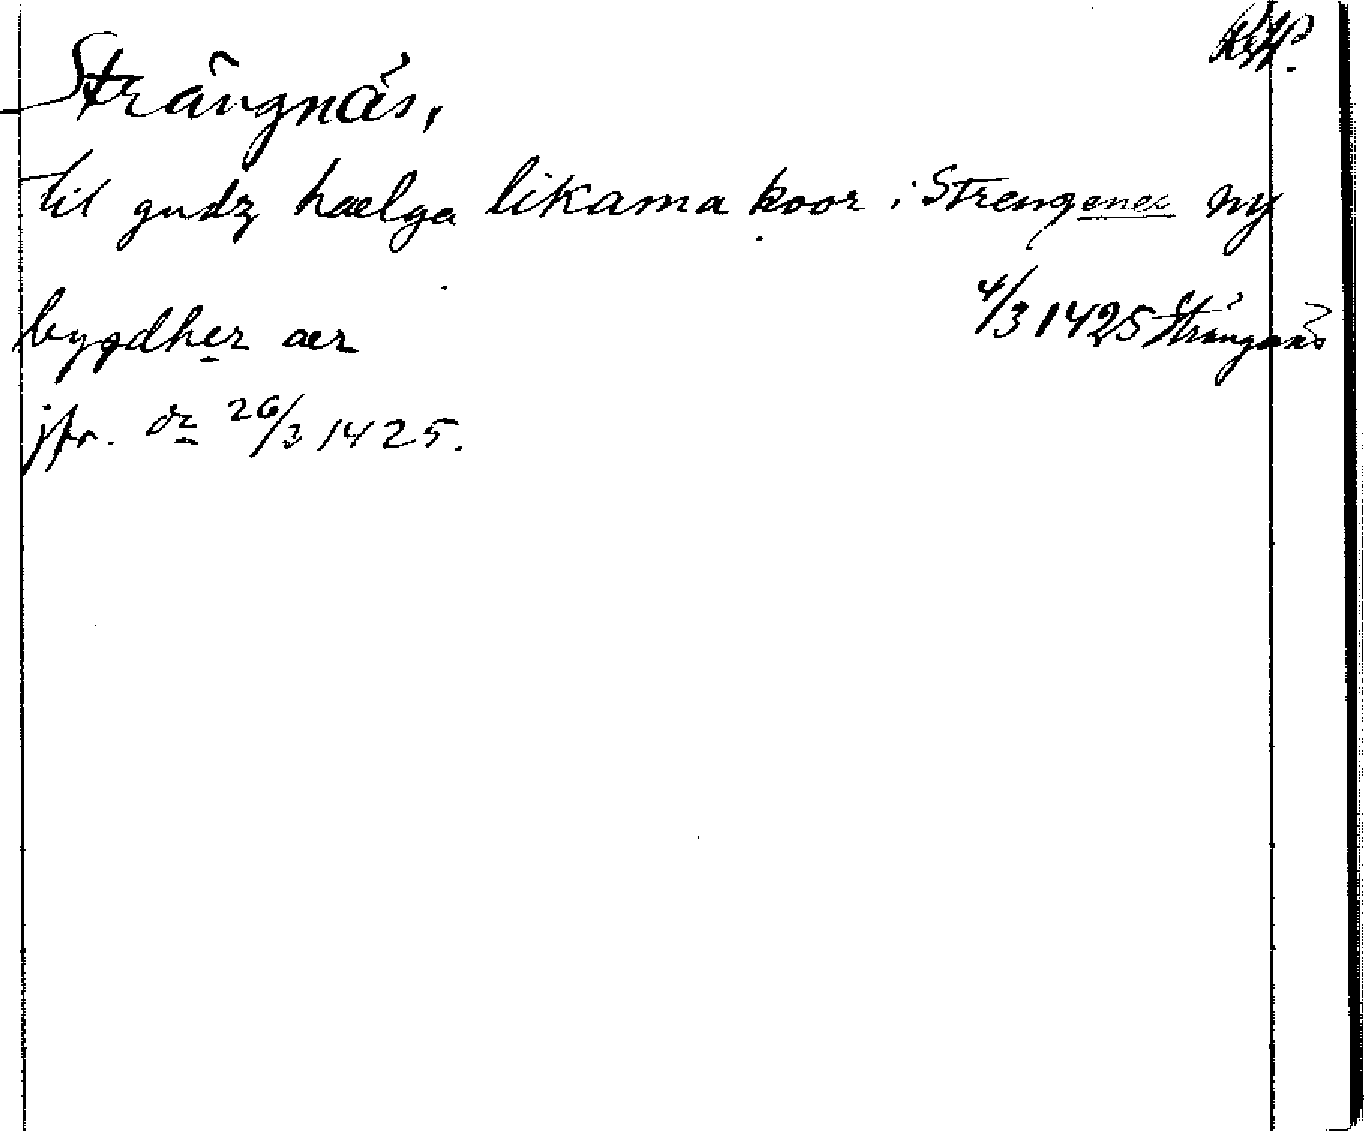 Strängnäs,
til gudz hælga likama koor i Strengenes ny
bygdher ær
4/3 1425 Strängnäs
jfr. dr 26/3 1425.